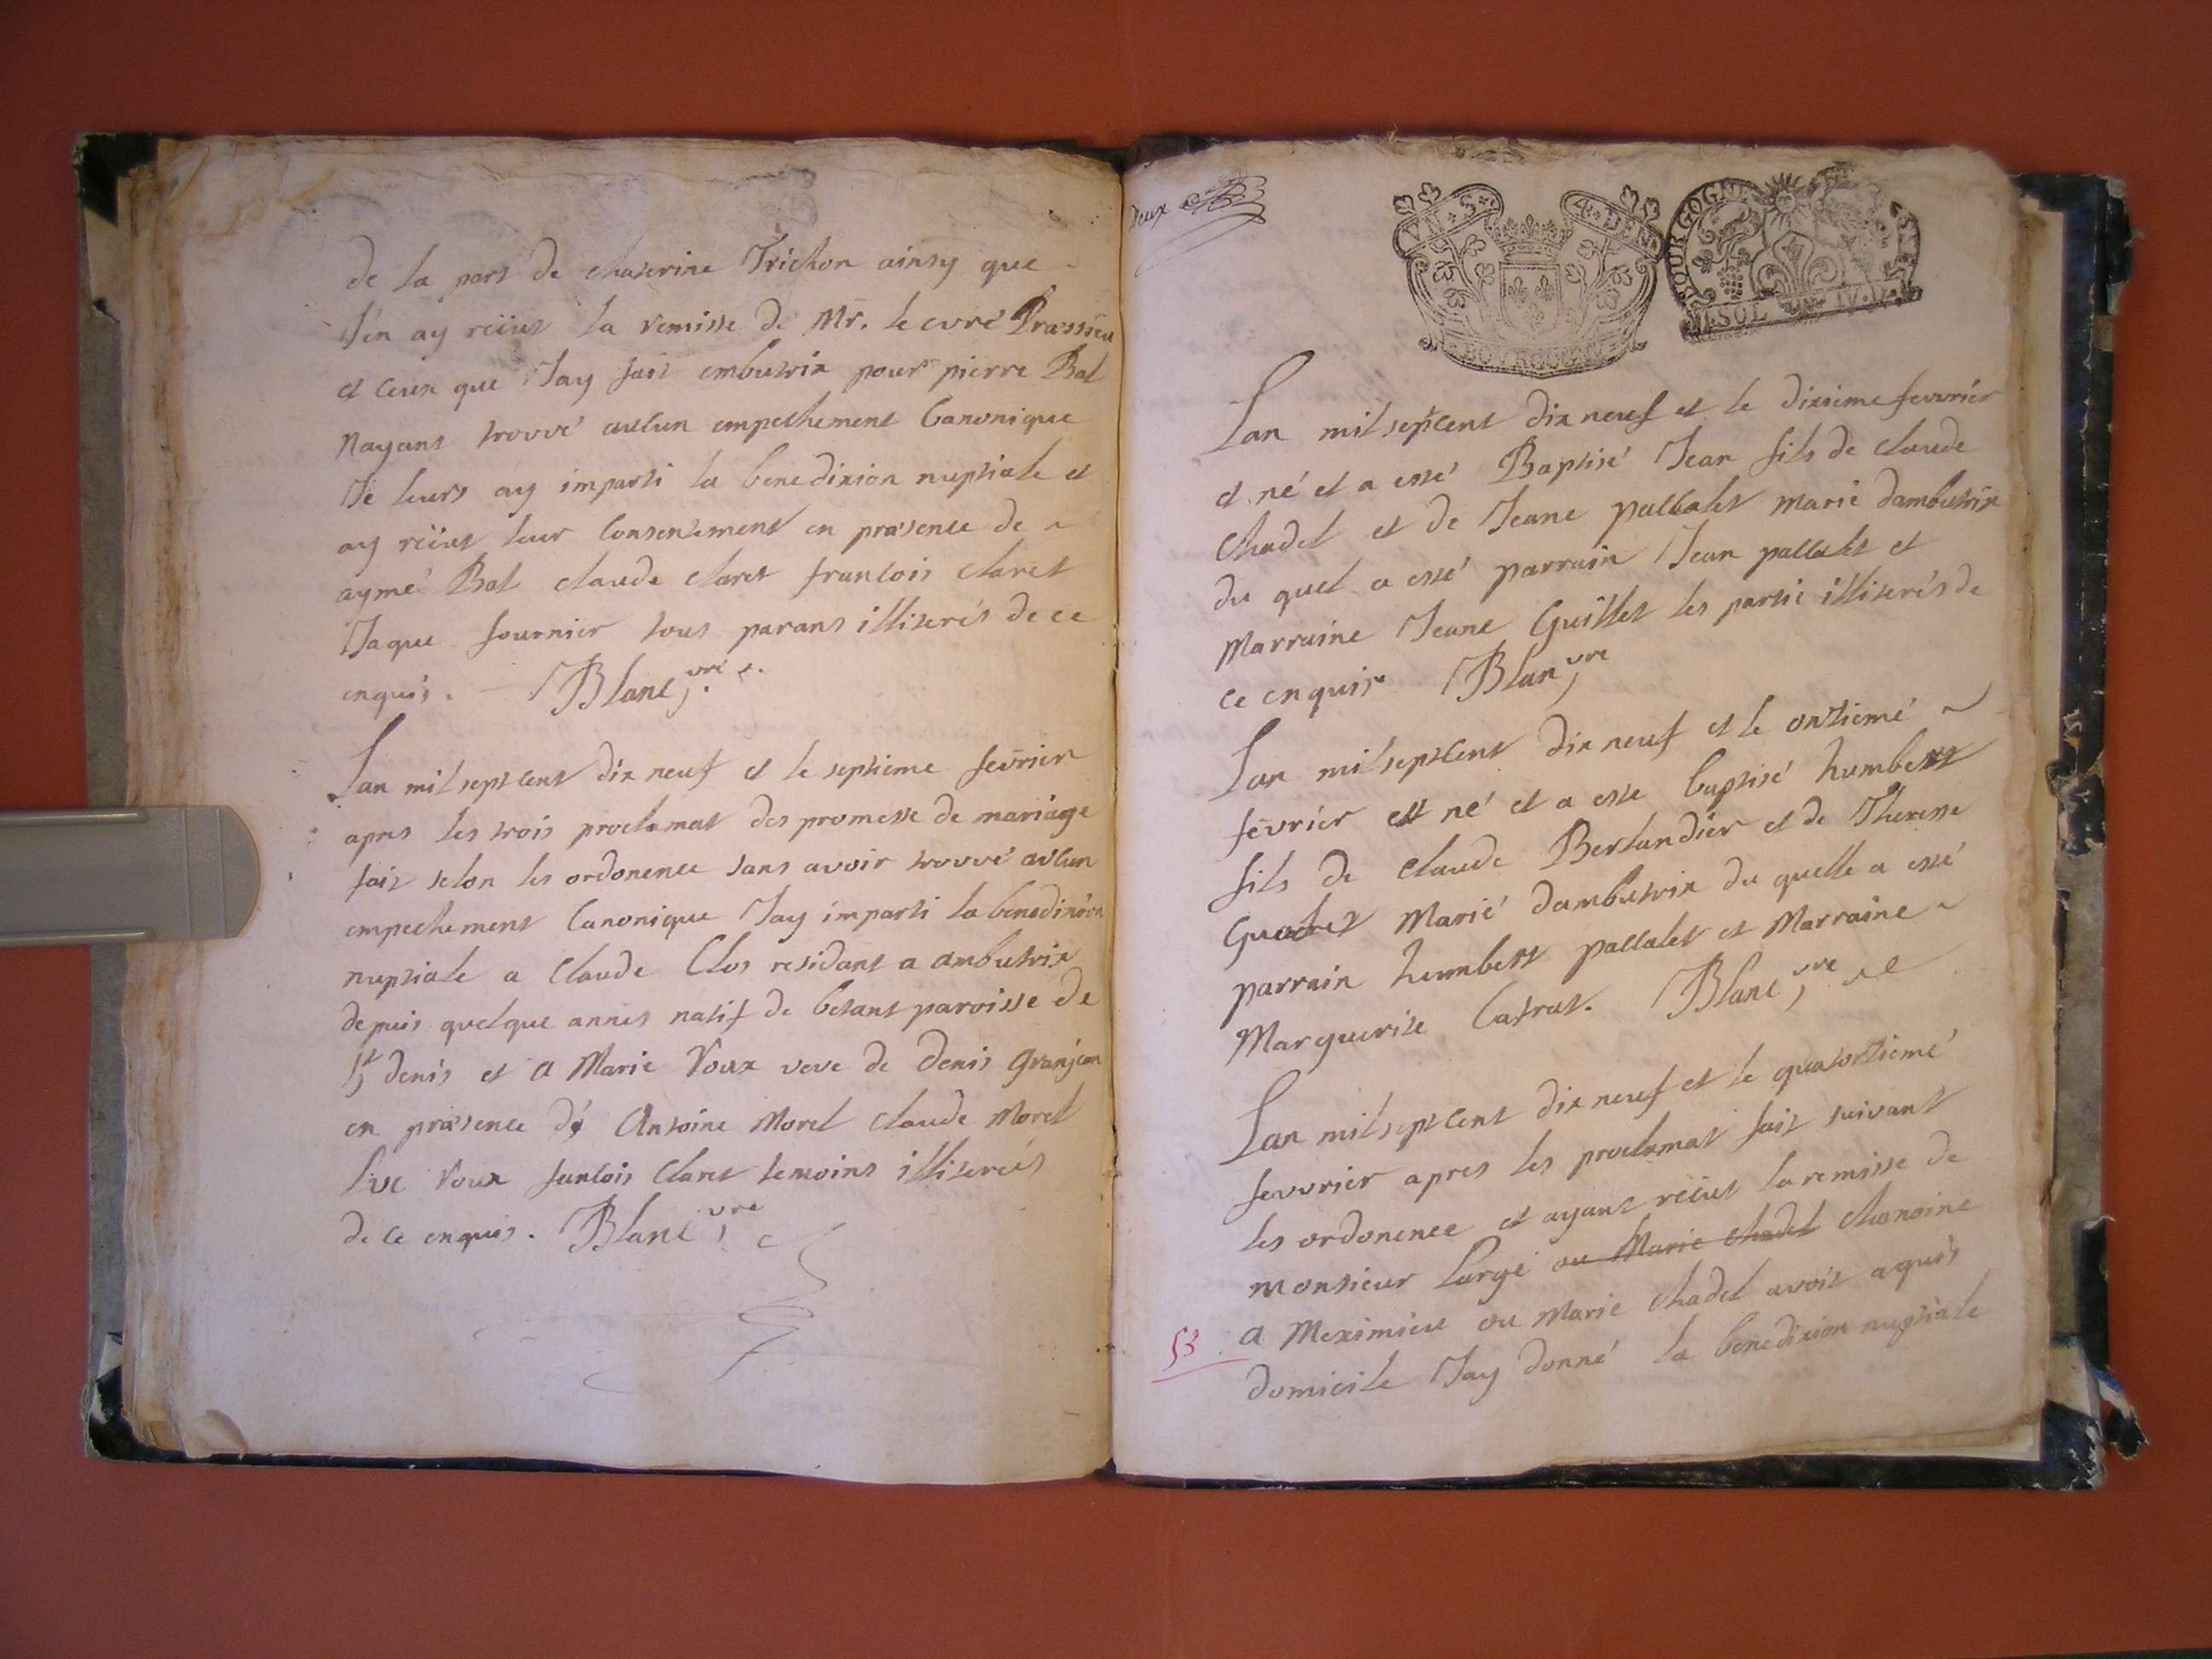 de la part de chaterine Trichon ainsy que
J'en ay reçut la remisse de Mr. le curé
et ceux que Jay fait embutrix pour pierre Bal
Nayant trouvé auCun empechement Canonique
Je leurs ay imparti la benedixion nuptiale et
ay reçut leur Consentement en præsence de ~
aymé Bal claude claret francois claret
Jaque fournier tous parans illiterés de ce
enquis. Blanc, vre
Lan mil septCent dix neuf et le septieme fevrier
apres les trois proclamat des promesse de mariage
fait selon les ordonence sans avoir trouvé auCun
empechement Canonique Jay imparti la benedixion
nuptiale a Claude Clos residant a ambutrix
depuis quelque annes natif de betant paroisse de
St denis et a Marie Roux veve de denis Granjean
en præsence de Antoine Morel claude Morel
luc Roux fancois Claret temoins illiterés
de ce enquis. Blanc, vre
deux
VN S. 4. DEN
BOURGOGNE
BOURGOGNE
SOL IV. D
Lan mil septCent dix neuf et le dixieme fevvrier
et né et a esté Baptisé Jean fils de claude
Chadel et de Jeane pallalet marié dambutrix
du quel a esté parrain Jean pallalet et
Marraine Jeane Guillet les partie illiterés de
ce enquis Blan, vre
Lan mil septCent dix neuf et le ontziemé ~
fevrier est né et a este baptisé humbert
fils de claude Berlandier et de Theresse
Guachet Marié dambutrix du quelle a esté
parrain humbert pallalet et Marraine ~
Marguerite Catrat. Blanc, vre
Lan mil septCent dix neuf et le quatortziemé
fevvrier apres les proclamat fait suivant
les ordonence et ayant reçut la remisse de
monsieur Large ou Marie chadel chanoine
a Meximieu ou Marie chadel avoit aquis
domicile Jay donné la benedixion nuptiale
53